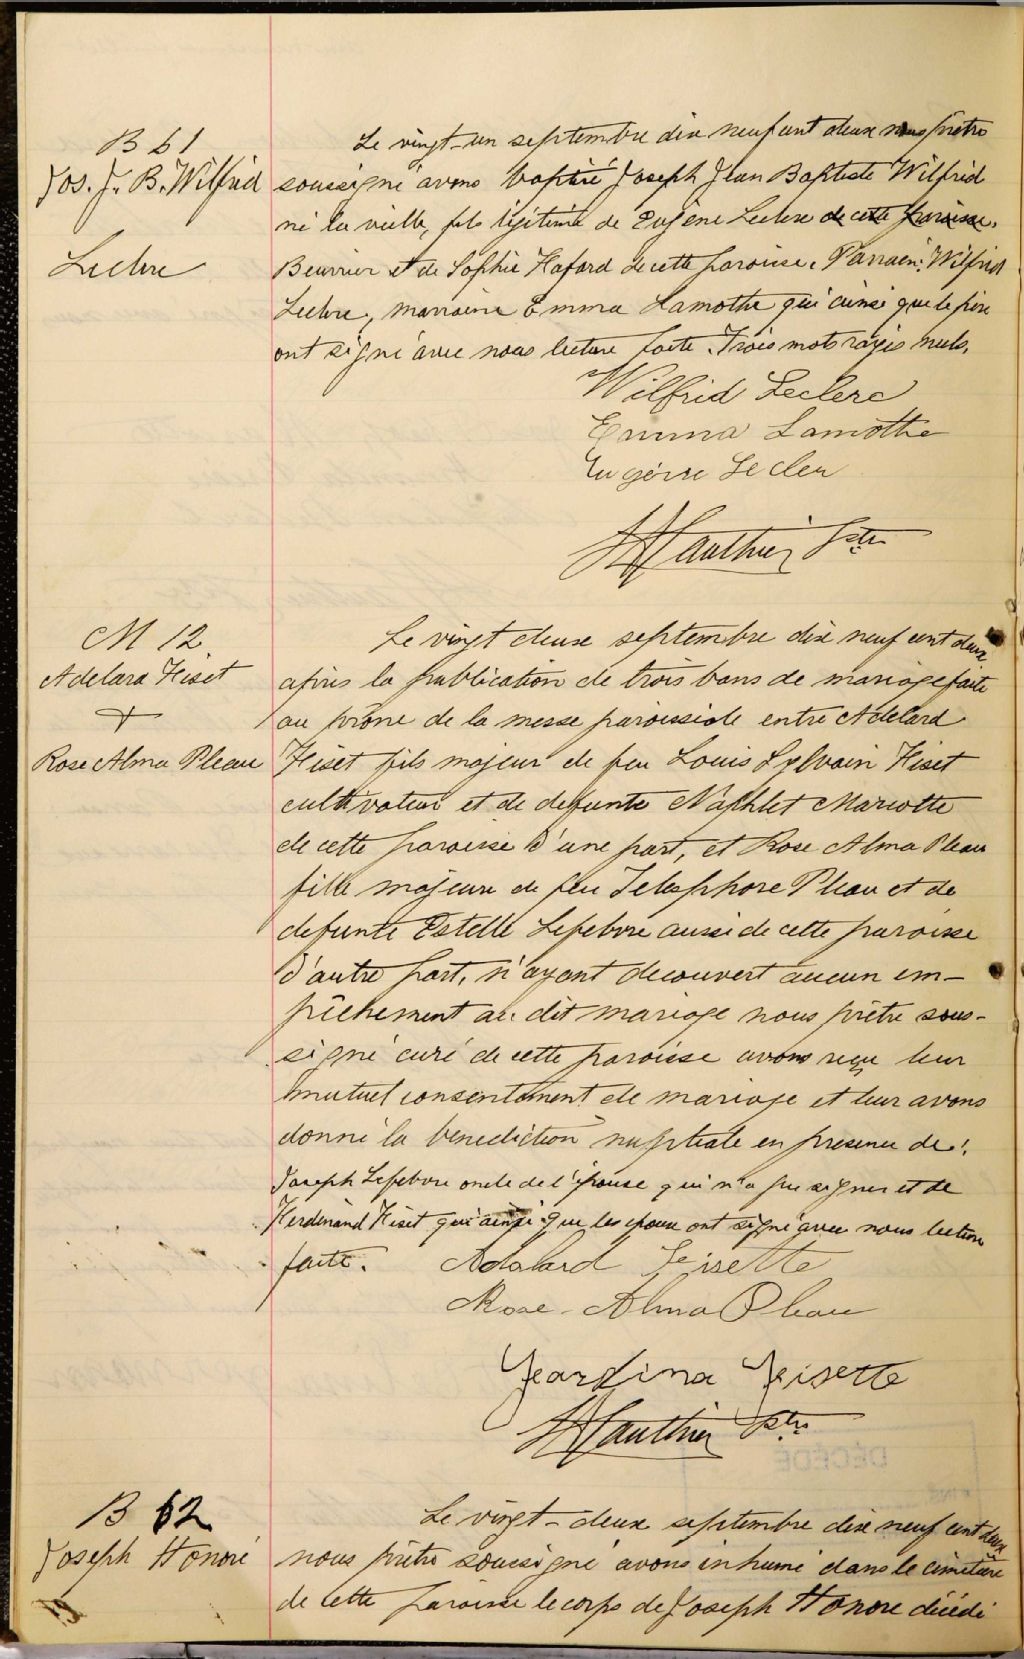 B 61
Jos. J. B. Wilfrid
Leclerc
Le vingt-un septembre dix neuf cent deux nous prêtre
soussigné avons baptisé Joseph Jean Baptiste Wilfrid
né la veille, fils légitime de Eugène Leclerc de cette paroisse.
Beurrier et de Sophie Hafard de cette paroisse. Parrain: Wilfrid
Leclerc, marraine Emma Lamothe qui ainsi que le père
ont signé avec nous lecture faite. Trois mots rayés nuls.
Wilfrid Leclerc
Emma Lamothe
Eugène Lecler
Gauthier Ptre
M 12
Adelard Fiset
+
Rose Alma Pleau
Le vingt deux septembre dix neuf cent deux
après la publication de trois bans de mariage faite
au prône de la messe paroissiale entre Adelard
Fiset fils majeur de feu Louis Sylvain Fiset
cultivateur et de defunte Naphlet Marcotte
de cette paroisse d'une part, et Rose Alma Pleau
fille majeure de feu Telesphore Pleau et de
defunte Estelle Lefebvre aussi de cette paroisse
d'autre part, n'ayant decouvert aucun em-
pêchement au dit mariage nous prêtre sous-
signé curé de cette paroisse avons reçu leur
mutuel consentement de mariage et leur avons
donné la benediction nuptiale en presence de:
Joseph Lefebvre oncle de l'épouse qui n'a pu signer et de
Ferdinand Fiset qui ainsi que les epoux ont signé avec nous lecture
faite. Adalard Feisette
Rose-Alma Pleau
Feardina Feisette
Gauthier Ptre
DÉCÉDÉ
B 62
Joseph Honoré
Le vingt-deux septembre dix neuf cent deux
nous prêtre soussigné avons inhumé dans le cimetière
de cette paroisse le corps de Joseph Honoré décédé